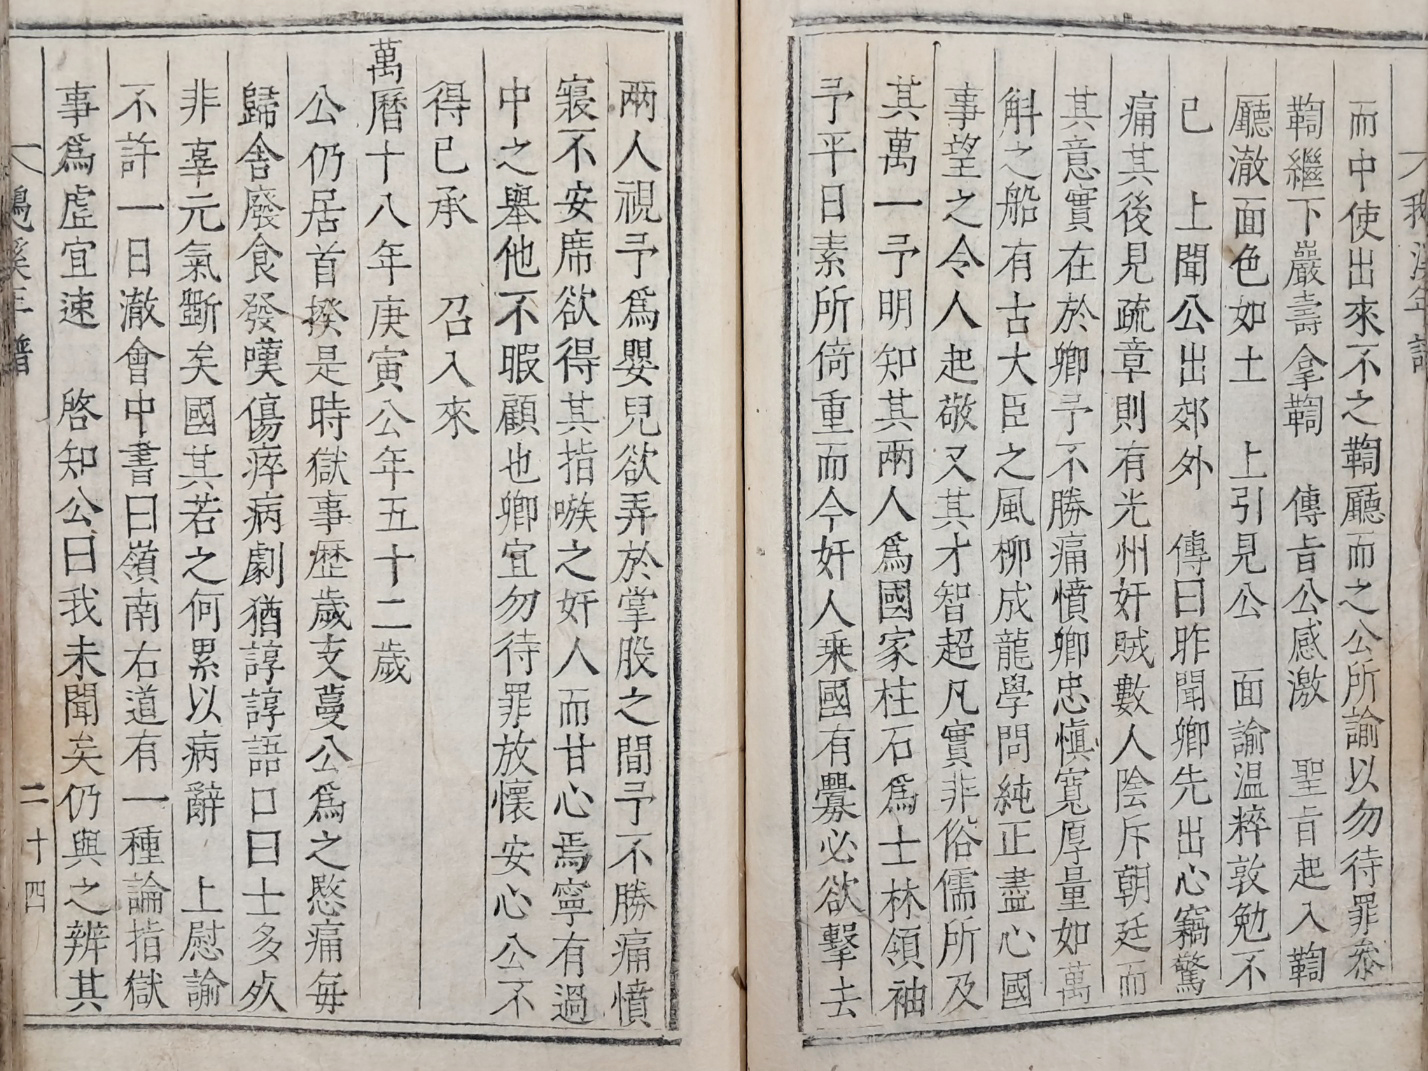 鵝溪年譜
而中使出來不之鞫廳而之公所諭以勿待罪叅
鞫繼下嚴壽拿鞫 傳旨公感激 聖旨起入鞫
廳澈面色如土 上引見公 面諭温粹敦勉不
已 上聞公出郊外 傳曰昨聞卿先出心竊驚
痛其後見疏章則有光州奸賊數人陰斥朝廷而
其意實在於卿予不勝痛憤卿忠愼寬厚量如萬
斛之船有古大臣之風柳成龍學問純正盡心國
事望之令人起敬又其才智超凡實非俗儒所及
其萬一予明知其兩人爲國家柱石爲士林領袖
予平日素所倚重而今奸人乘國有釁必欲擊去
兩人視予爲嬰兒欲弄於掌股之間予不勝痛憤
寢不安席欲得其指嗾之奸人而甘心焉寧有過
中之舉他不暇顧也卿宜勿待罪放懷安心公不
得已承 召入來
萬曆十八年庚寅公年五十二歲
公仍居首揆是時獄事歷歲支蔓公爲之愍痛每
歸舍廢食發嘆傷瘁病劇猶諄諄語口曰士多死
非辜元氣斷矣國其若之何累以病辭 上慰諭
不許一日澈會中書曰嶺南右道有一種論指獄
事爲虛宜速 啓知公曰我未聞矣仍與之辨其
鵝溪年譜 二十四